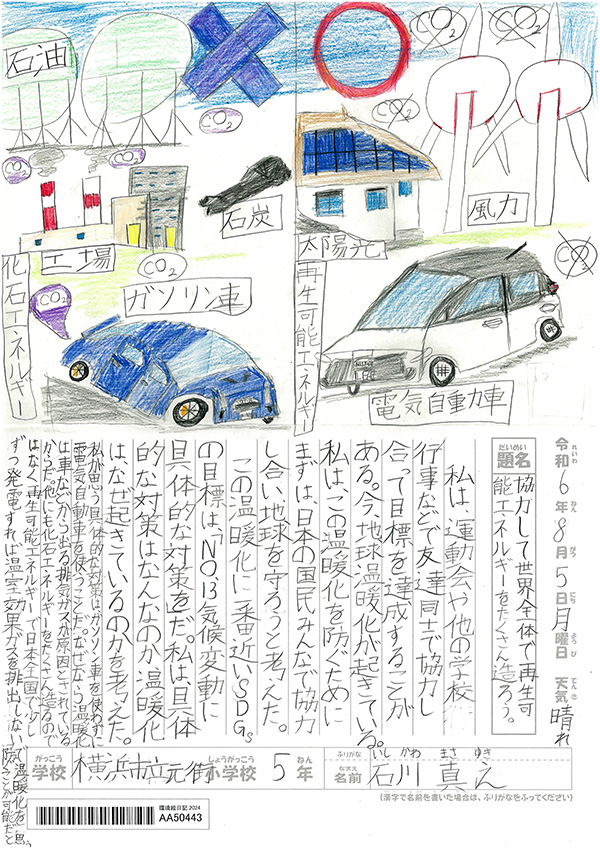 石油
CO2
CO2
CO2
石炭
工場
CO2
ガソリン車
CO2
化石エネルギー
CO2
CO2
CO2
風力
太陽光
再生可能エネルギー
CO2
電気自動車
令和6年8月5日月曜日 天気 晴れ
れいわ ねん がつ にち ようび てんき
だいめい
題名
協力して世界全体で再生可
能エネルギーをたくさん造ろう。
私は、運動会や他の学校
行事などで友達同士で協力し
合って目標を達成することが
ある。今、地球温暖化が起きている。
私は、この温暖化を防ぐために
まずは、日本の国民みんなで協力
し合い、地球を守ろうと考えた。
この温暖化に一番近いSDGs
の目標は、「NO.13気候変動に
具体的な対策を」だ。私は、具体
的な対策はなんなのか、温暖化
は、なぜ起きているのかを考えた。
私が思う具体的な対策はガソリン車を使わずに
電気自動車を使うことだ。なぜなら、温暖化
は車などから出る排気ガスが原因とされている
からだ。他にも化石エネルギーをたくさん造るので
はなく再生可能エネルギーで日本全国で少し
ずつ発電すれば温室効果ガスを排出しない
で温暖化を
防ぐことが可能だと思う。
がっこう
学校
横浜市立元街小学校
しょうがっこう
5年
ねん
ふりがな
いしかわ まさゆき
なまえ
名前
石川 真之
(漢字で名前を書いた場合は、ふりがなをふってください)
環境絵日記 2024
AA50443